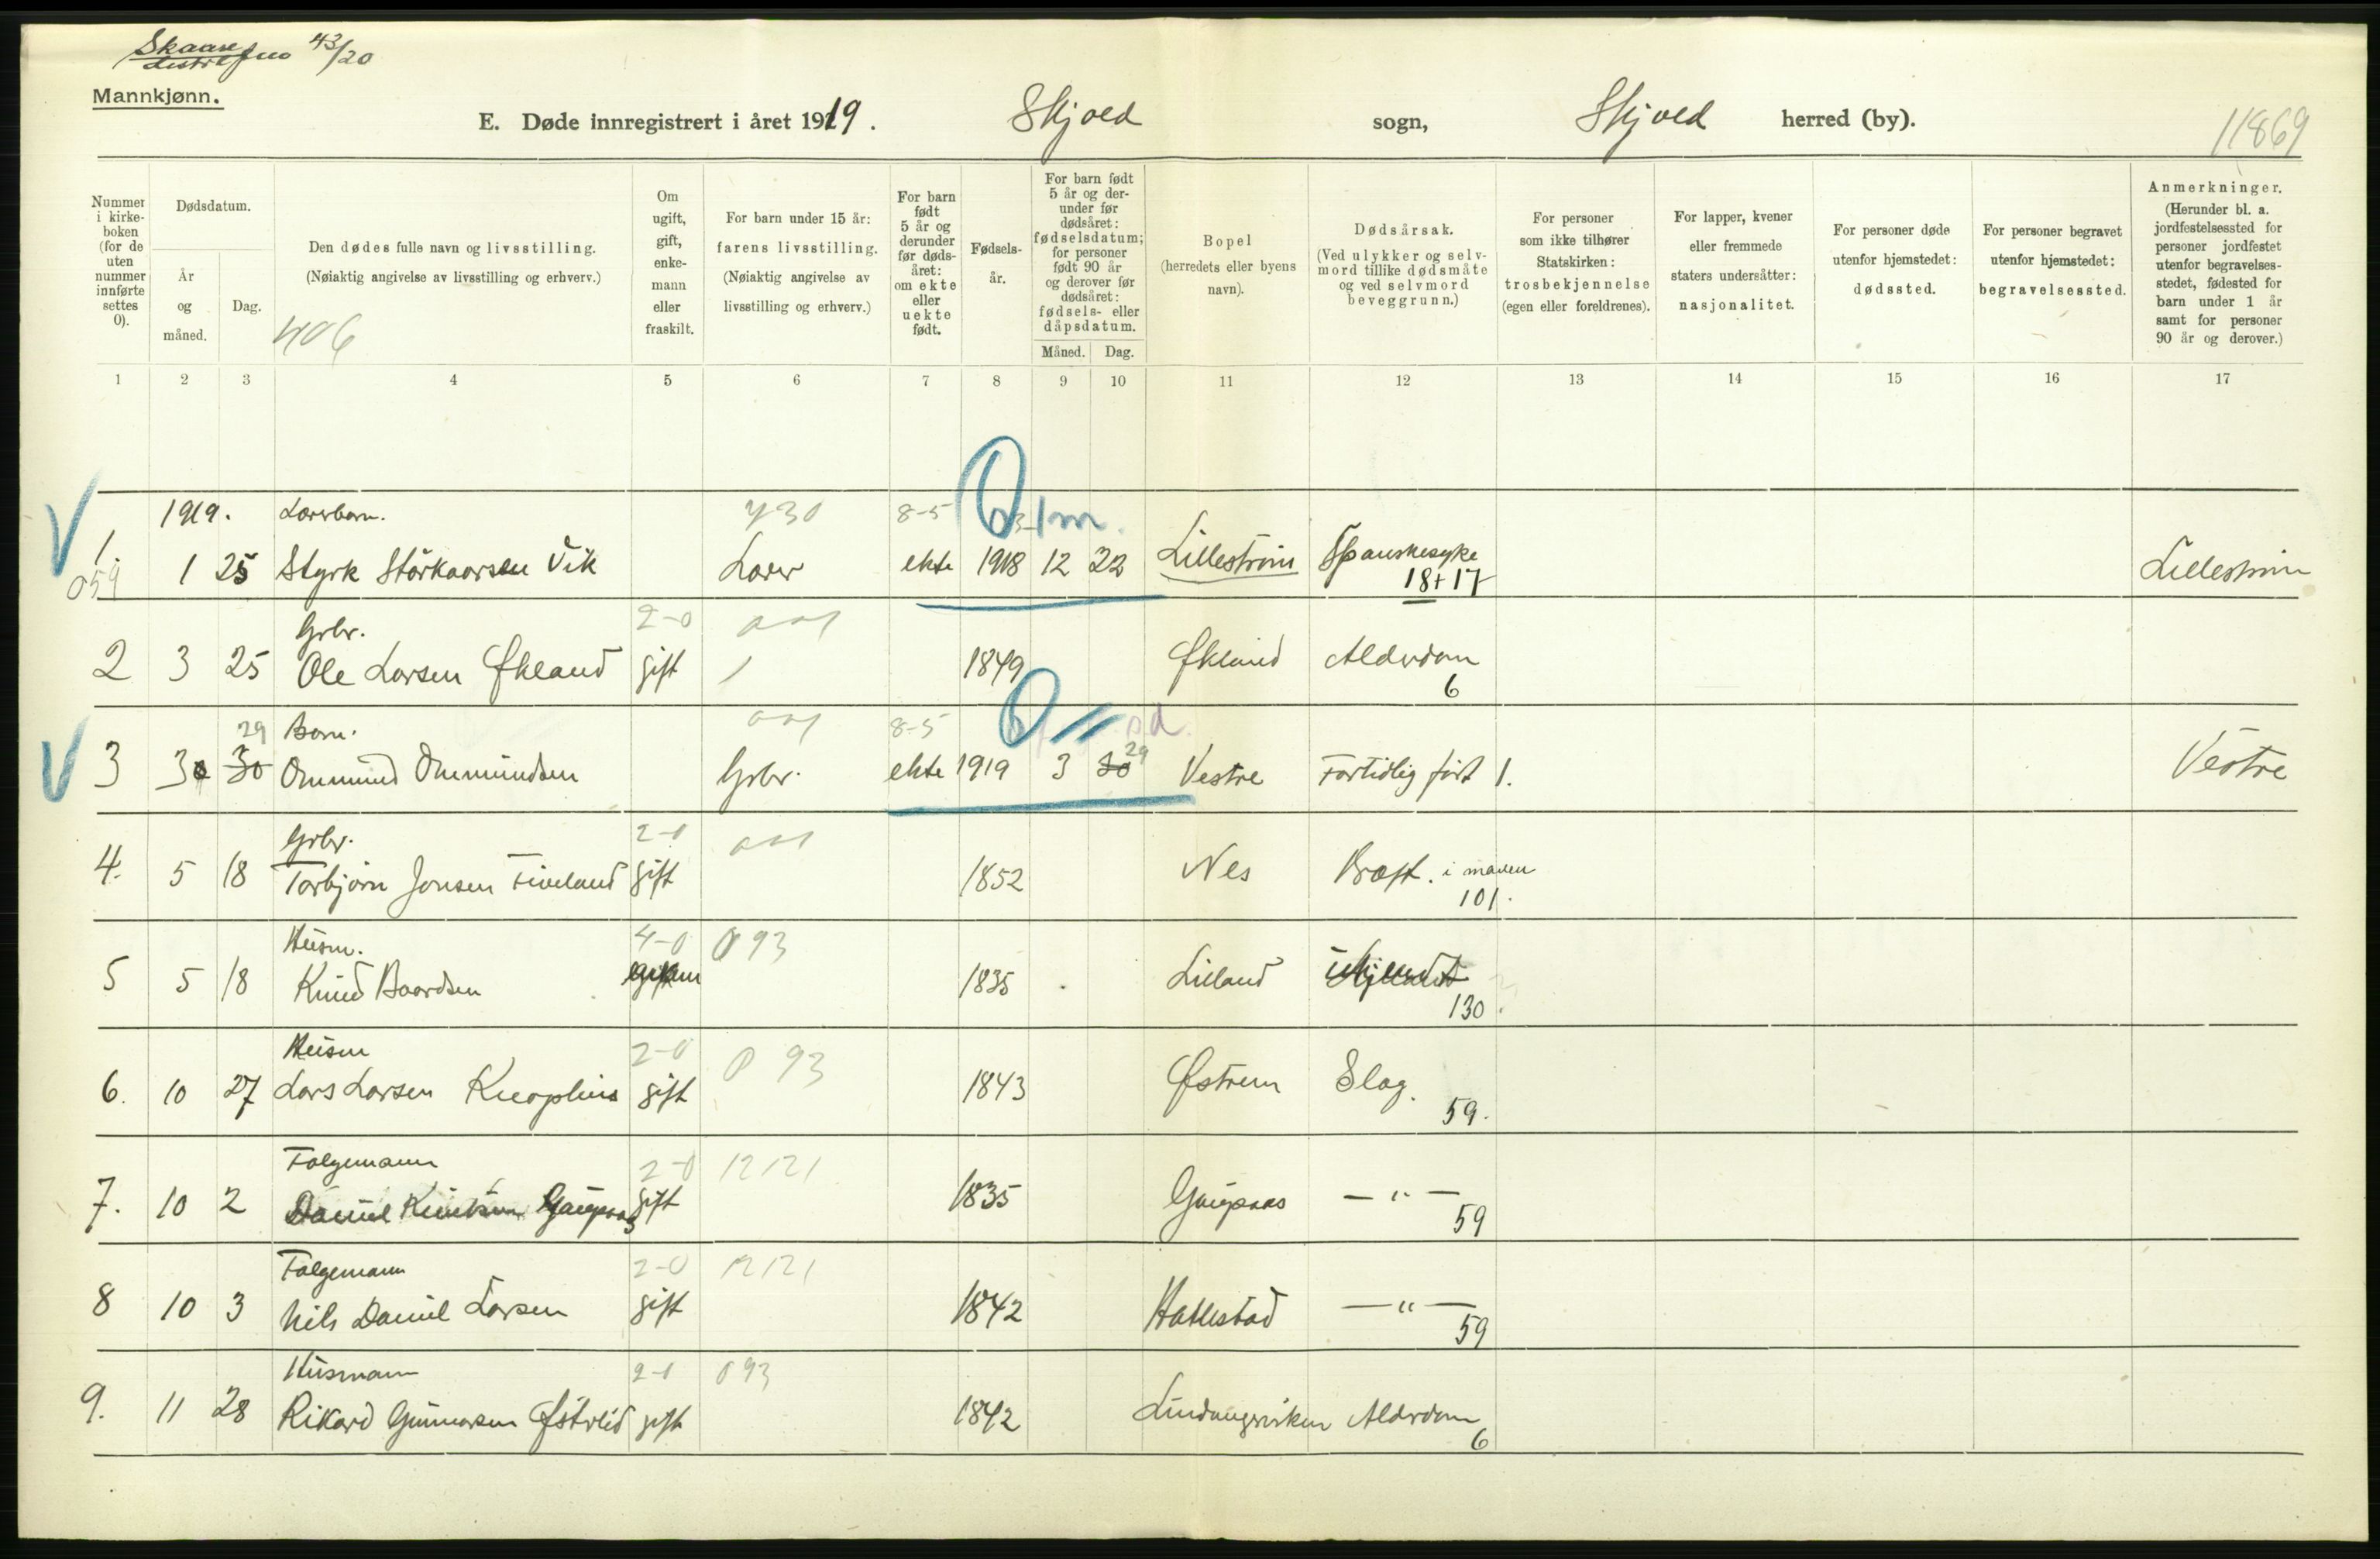 43/20
Mannkjønn.
E. Døde innregistrert i året 1919. Skjold sogn, Skjold herred (by). 11869
Nummer i kirkeboken (for de uten nummer innførte settes 0).
Dødsdatum.
År og måned.
Dag.
Den dødes fulle navn og livsstilling.
(Nøiaktig angivelse av livsstilling og erhverv.)
406
Om ugift, gift, enkemann eller fraskilt.
For barn under 15 år: farens livsstilling.
(Nøiaktig angivelse av livsstilling og erhverv.)
For barn født 5 år og derunder før dødsåret: om ekte eller uekte født.
Fødselsår.
For barn født 5 år og derunder før dødsåret: fødselsdatum; for personer født 90 år og derover før dødsåret: fødsels- eller dåpsdatum.
Måned.
Dag.
Bopel
(herredets eller byens navn).
Dødsårsak.
(Ved ulykker og selvmord tillike dødsmåte og ved selvmord beveggrunn.)
For personer som ikke tilhører Statskirken: trosbekjennelse (egen eller foreldrenes).
For lapper, kvener eller fremmede staters undersåtter: nasjonalitet.
For personer døde utenfor hjemstedet: dødssted.
For personer begravet utenfor hjemstedet: begravelsessted.
Anmerkninger.
(Herunder bl. a. jordfestelsessted for personer jordfestet utenfor begravelsesstedet, fødested for barn under 1 år samt for personer 90 år og derover.)
1 2 3 4 5 6 7 8 9 10 11 12 13 14 15 16 17
1919. Lærerbarn. 730 8-5 1m.
1. 1 25 Styrk Störkaarsen Vik Lærer ekte 1918 12 22 Lilleström Spanskesyke Lilleström
059 18+17
Grbr. 2-0
2 3 25 Ole Larsen Økland gift 1849 Økland Alderdom
6
29 Barn. 8-5 sd. 29
3 3 30 Ommund Ommundsen Grbr. ekte 1919 3 30 Vestre Fortidlig født 1. Vestre
Grbr. 2-0
4. 5 18 Torbjørn Jonsen Fiveland gift 1852 Nes Kræft. i maven
101.
Husm. 4-0 093
5 5 18 Knud Baardsen 1835 Lilland
130.
Husm 2-0 093
6. 10 27 Lars Larsen gift 1843 Østrem Slag.
59.
Folgemann 2-0 12121
7. 10 2 Daniel Knutsen Gaupaas gift 1835 Gaupaas — " —
59
Folgemann 2-0 12121
8 10 3 Nils Daniel Larsen gift 1842 Hattestad — " —
59
Husmann 2-0 093
9. 11 28 Rikard Gunnarsen Østrelid gift 1842 Alderdom
6